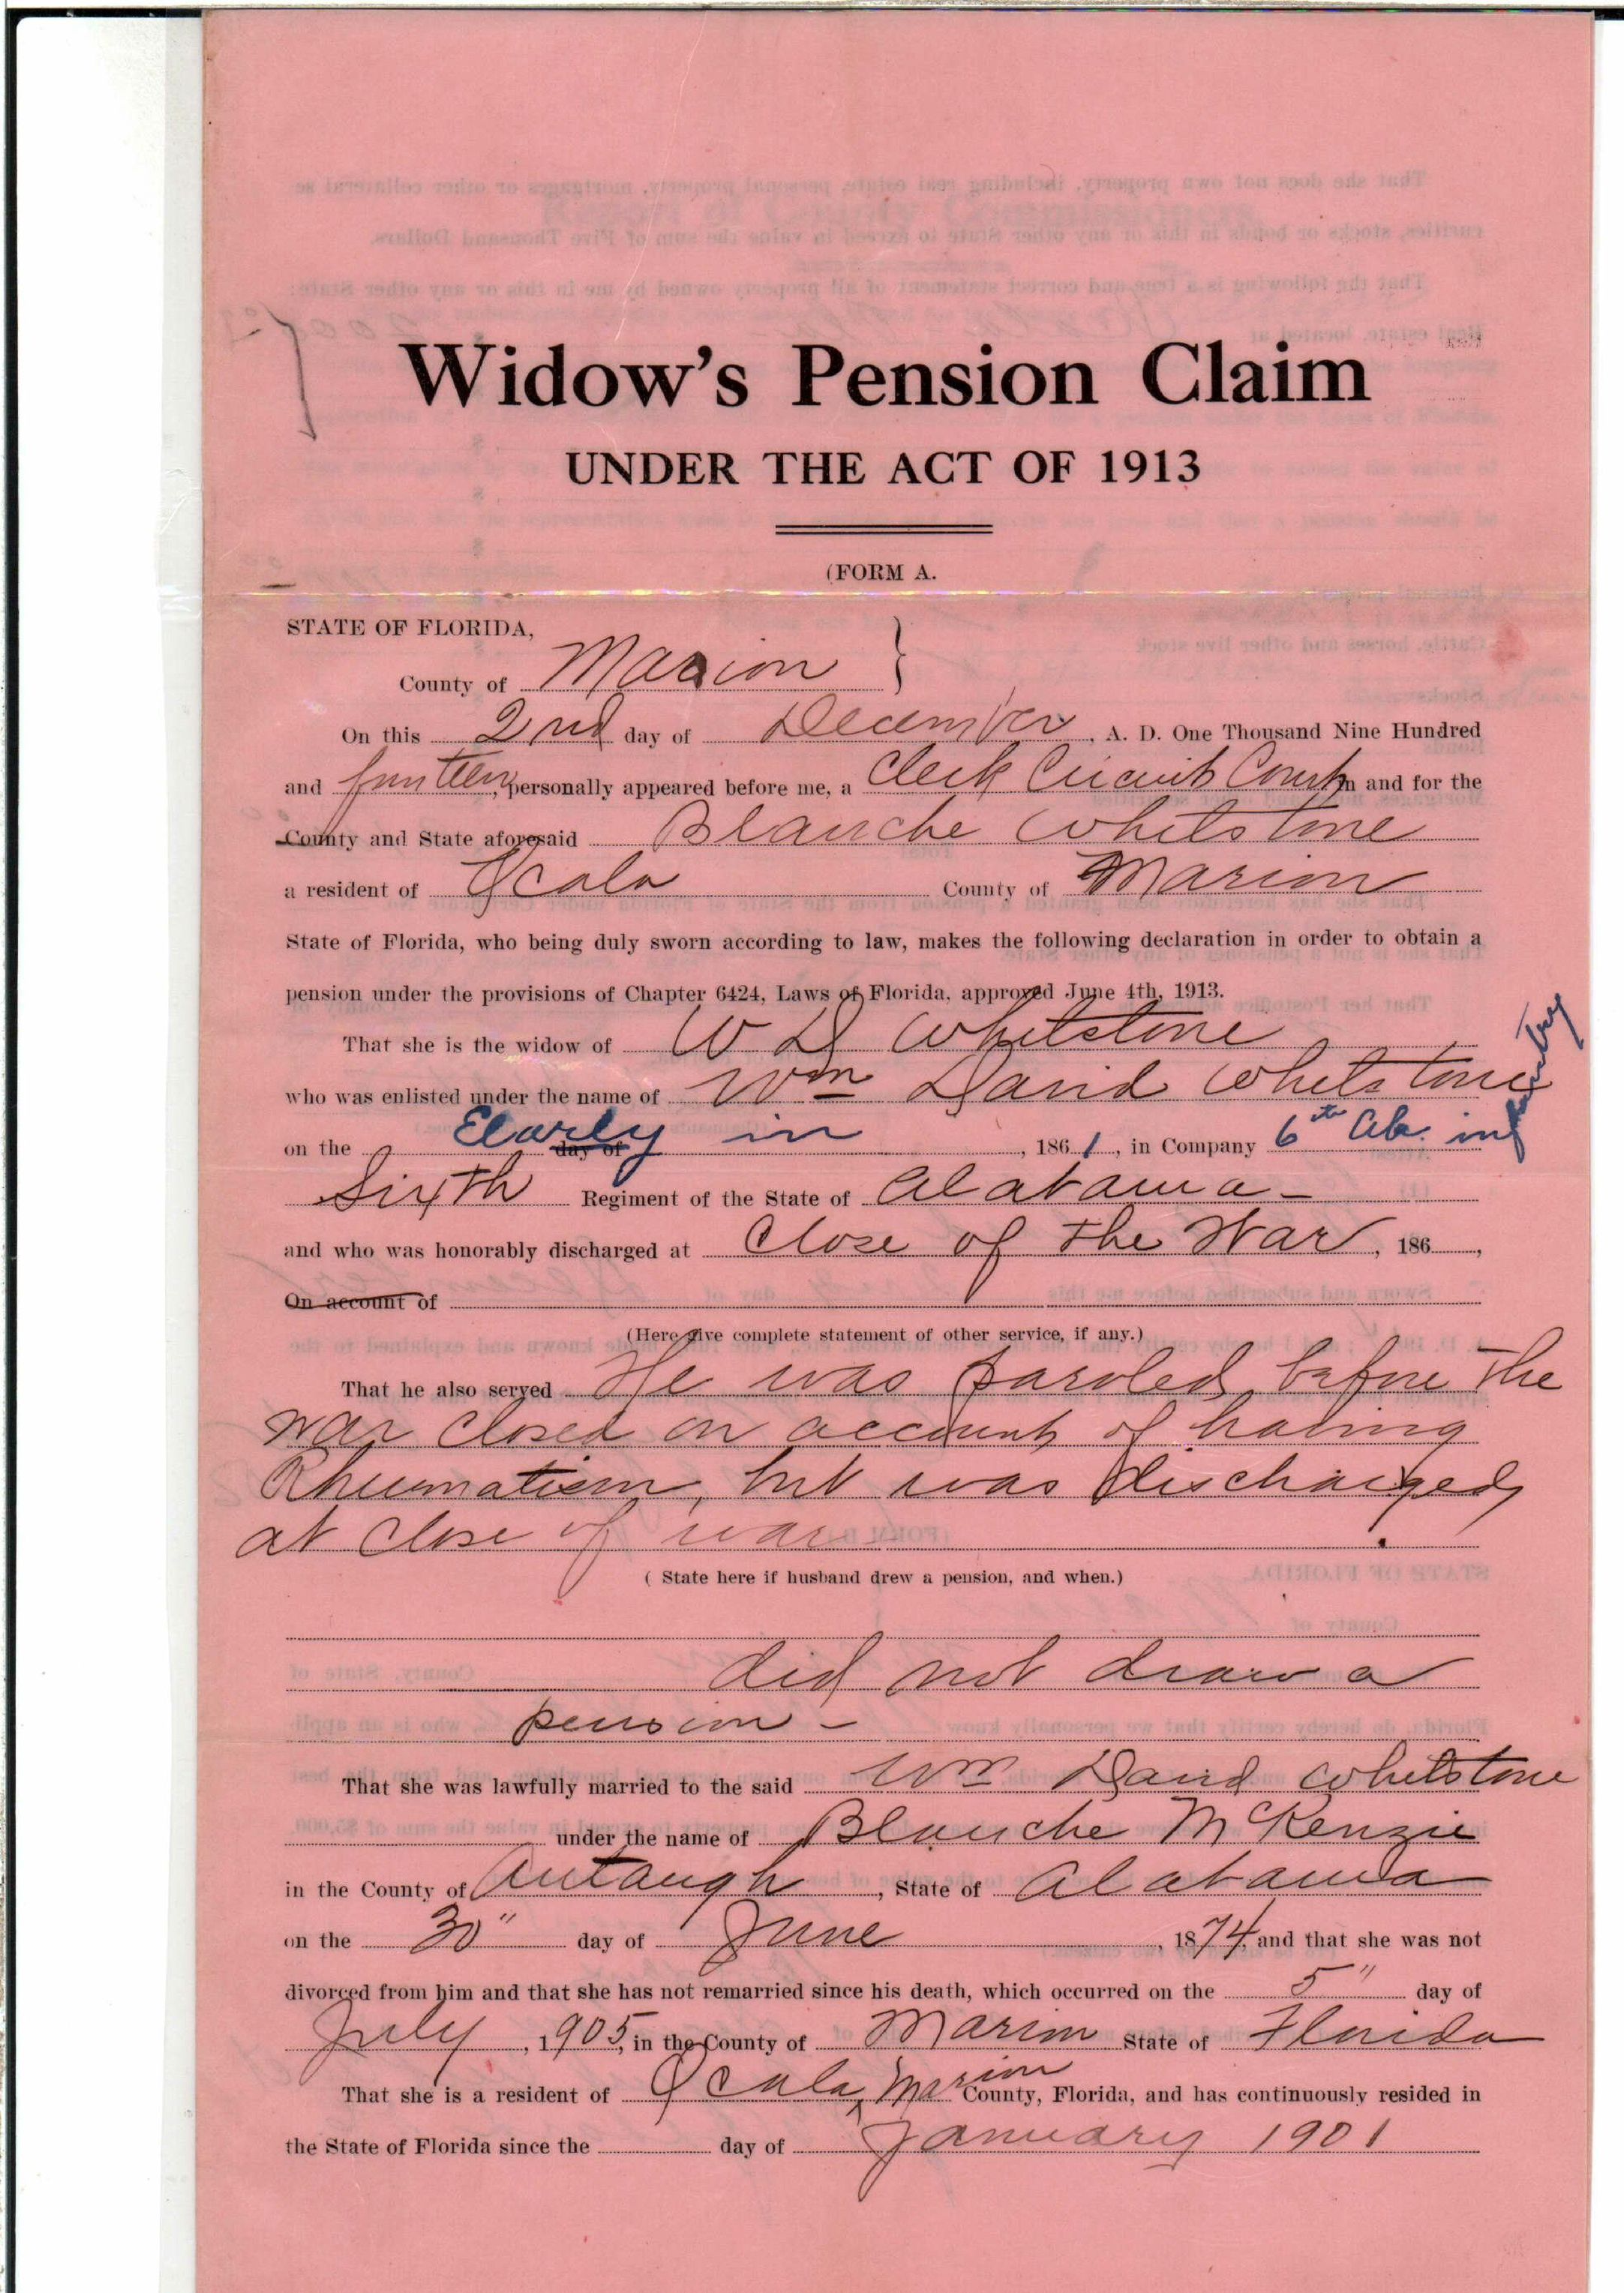 Widow's Pension Claim
UNDER THE ACT OF 1913
(FORM A.
STATE OF FLORIDA,
County of Marion }
On this 2nd day of December, A. D. One Thousand Nine Hundred
and fourteen, personally appeared before me, a Clerk Circuit Court in and for the
County and State aforesaid Blanche Whetstone
a resident of Ocala County of Marion
State of Florida, who being duly sworn according to law, makes the following declaration in order to obtain a
pension under the provisions of Chapter 6424, Laws of Florida, approved June 4th, 1913.
That she is the widow of W D Whetstone
who was enlisted under the name of Wm David Whetstone
on the Early day of in, 1861, in Company 6th Ala. infantry
Sixth Regiment of the State of Alabama -
and who was honorably discharged at Close of the War, 186 ,
On account of
(Here give complete statement of other service, if any.)
That he also served He was paroled before the
war closed on account of having
Rheumatism, but was discharged
at close of war.
( State here if husband drew a pension, and when.)
did not draw a
pension -
That she was lawfully married to the said Wm David Whetstone
under the name of Blanche McKenzie
in the County of Autaugh, State of Alabama
on the 30" day of June, 1874, and that she was not
divorced from him and that she has not remarried since his death, which occurred on the 5" day of
July, 1905, in the County of Marion State of Florida
That she is a resident of Ocala, Marion County, Florida, and has continuously resided in
the State of Florida since the day of January 1901